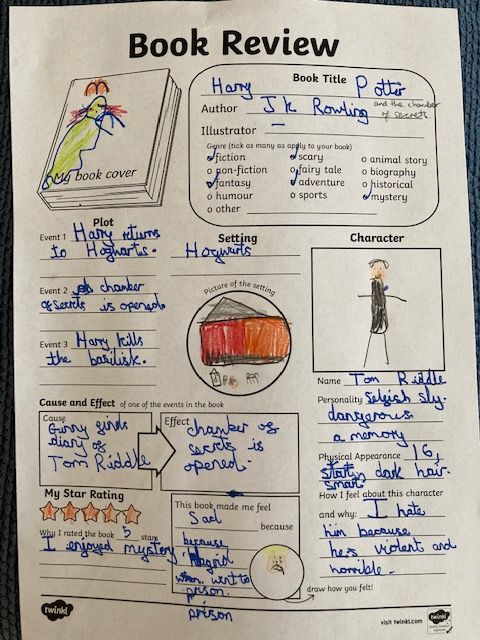 Book Review
My book cover
Book Title
Harry Potter
and the chamber
of secrets
Author J k Rowling
Illustrator –
Genre (tick as many as apply to your book)
fiction
scary
animal story
non-fiction
fairy tale
biography
fantasy
adventure
historical
humour
sports
mystery
other
Plot
Event 1 Harry returns
to Hogwarts.
Event 2 chamber
of secrets is opened.
Event 3 Harry kills
the basilisk.
Setting
Hogwrts
Picture of the setting
Character
Name Tom Riddle
Personality selfish sly.
dangerous.
a memory
Physical Appearance 16,
dark hair.
smart
How I feel about this character
and why: I hate
him because
he's violent and
horrible.
Cause and Effect of one of the events in the book
Cause
Ginny finds
diary of
Tom Riddle
Effect
chanber of
secrets is
opened.
My Star Rating
Why I rated the book 5 stars
I enjoyed mystery
This book made me feel
Sad
because
because
Hagrid
when went to
prison.
prison
draw how you felt!
twinkl
visit twinkl.com